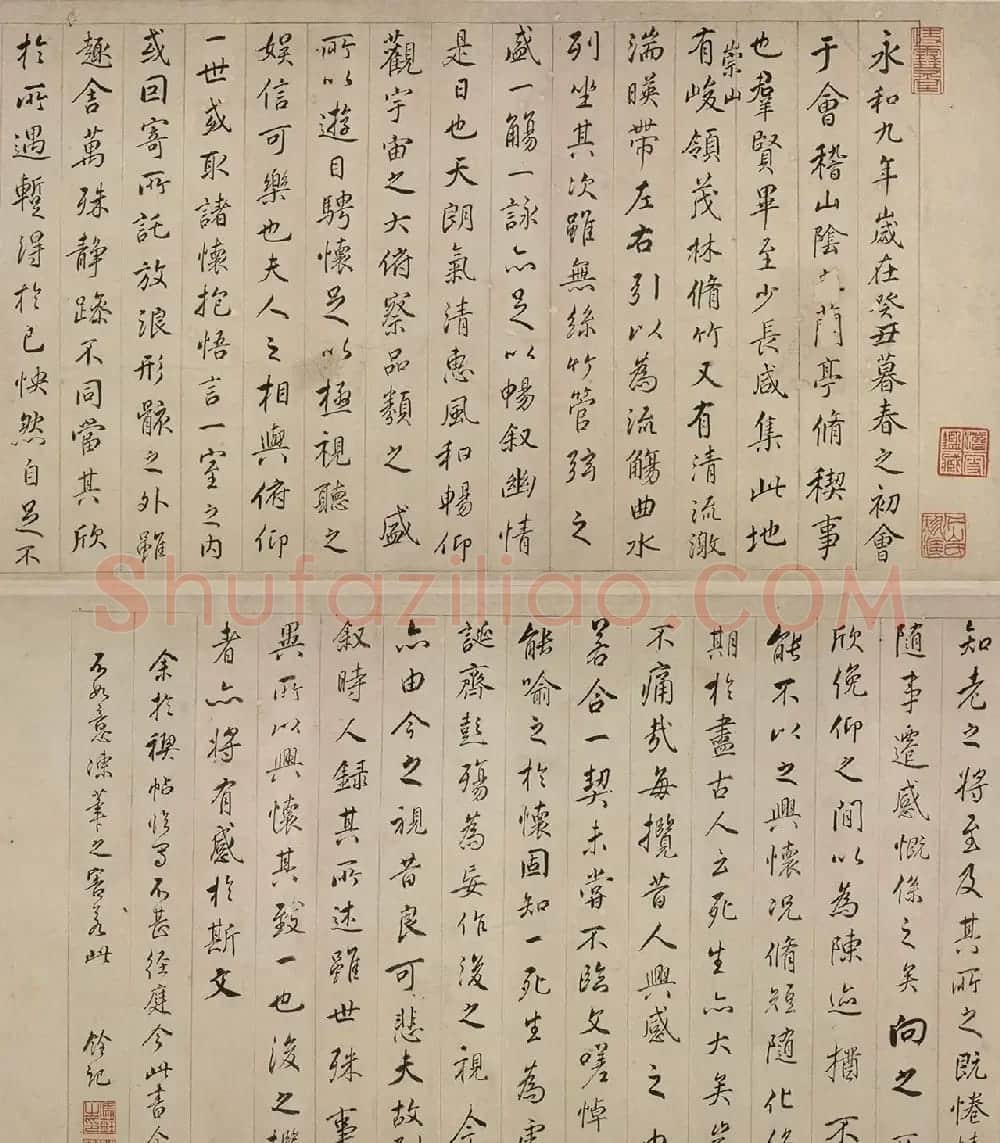 永和九年歲在癸丑暮春之初會
于會稽山陰之蘭亭脩稧事
也羣賢畢至少長咸集此地
有崇山峻領茂林脩竹又有清流激
湍暎帶左右引以為流觴曲水
列坐其次雖無絲竹管弦之
盛一觴一詠亦足以暢叙幽情
是日也天朗氣清惠風和暢仰
觀宇宙之大俯察品類之盛
所以遊目騁懷足以極視聽之
娛信可樂也夫人之相與俯仰
一世或取諸懷抱悟言一室之內
或因寄所託放浪形骸之外雖
趣舍萬殊静躁不同當其欣
於所遇蹔得於己怏然自足不
Shufaziliao.COM
知老之將至及其所之既惓
随事遷感慨係之矣向之
欣俛仰之間以為陳迹猶不
能不以之興懷況脩短隨化
期於盡古人云死生亦大矣豈
不痛哉每攬昔人興感之
若合一契未嘗不臨文嗟悼
能喻之於懷固知一死生為
誕齊彭殤為妄作後之視今
亦由今之視昔良可悲夫故
叙時人録其所述雖世殊事
異所以興懷其致一也後之
者亦將有感於斯文
余於禊帖臨寫不甚徑庭今此書
不如意漆筆之害若此
銓記